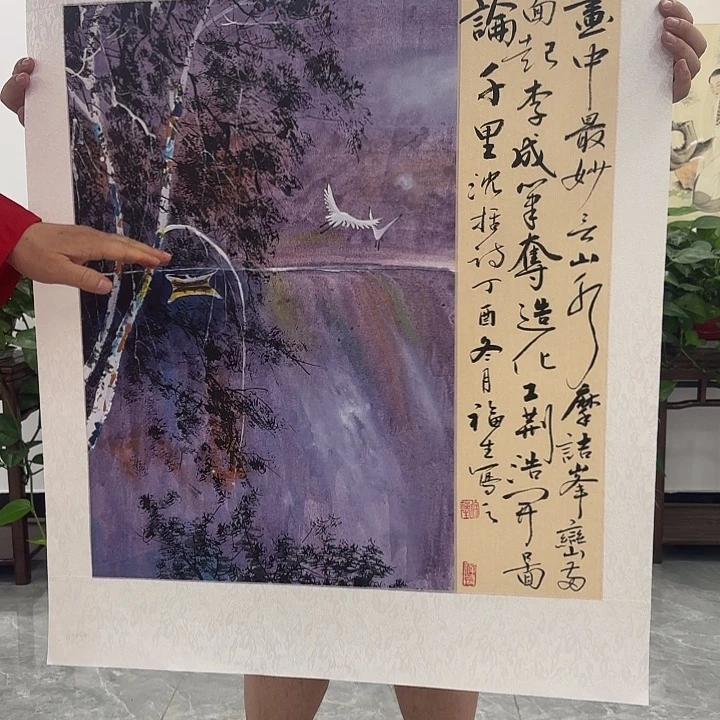 畫中最妙言山水摩詰峯巒兩
面起李成筆奪造化工荆浩開圖
論千里沈括詩丁酉冬月福生寫之